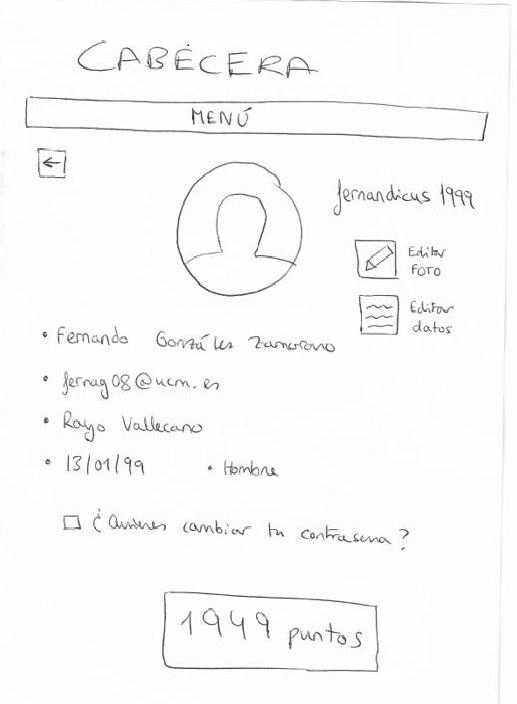 CABECERA
MENÚ
fernandicus 1999
Editar
FOTO
Editar
datos
• Fernando González Zamorano
• fernag08@ucm.es
• Rayo Vallecano
• 13/01/99 • Hombre
¿Quieres cambiar tu contraseña?
1949 puntos